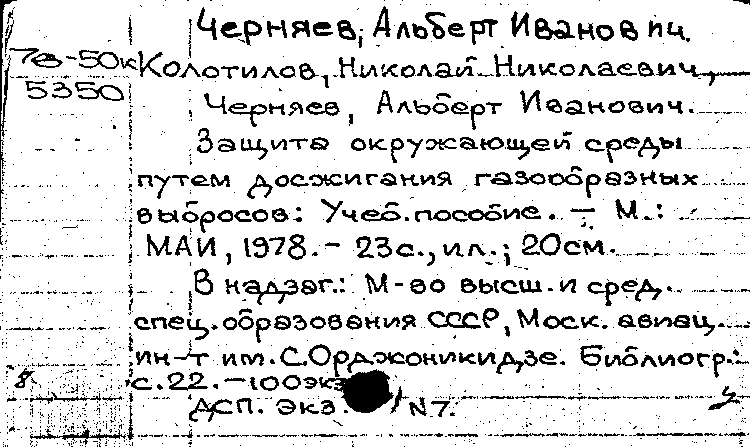 Черняев, Альберт Иванович.
7в-50к Колотилов, Николай Николаевич,
5350 Черняев, Альберт Иванович.
Защита окружающей среды
путем досжигания газообразных
выбросов: Учеб. пособие. — М.:
МАИ, 1978. - 23 с., ил.; 20 см.
В надзаг.: М-во высш. и сред.
спец. образования СССР, Моск. авиац.
ин-т им. С. Орджоникидзе. Библиогр.:
8. с. 22. — 100 экз
ДСП. Экз. N 7.